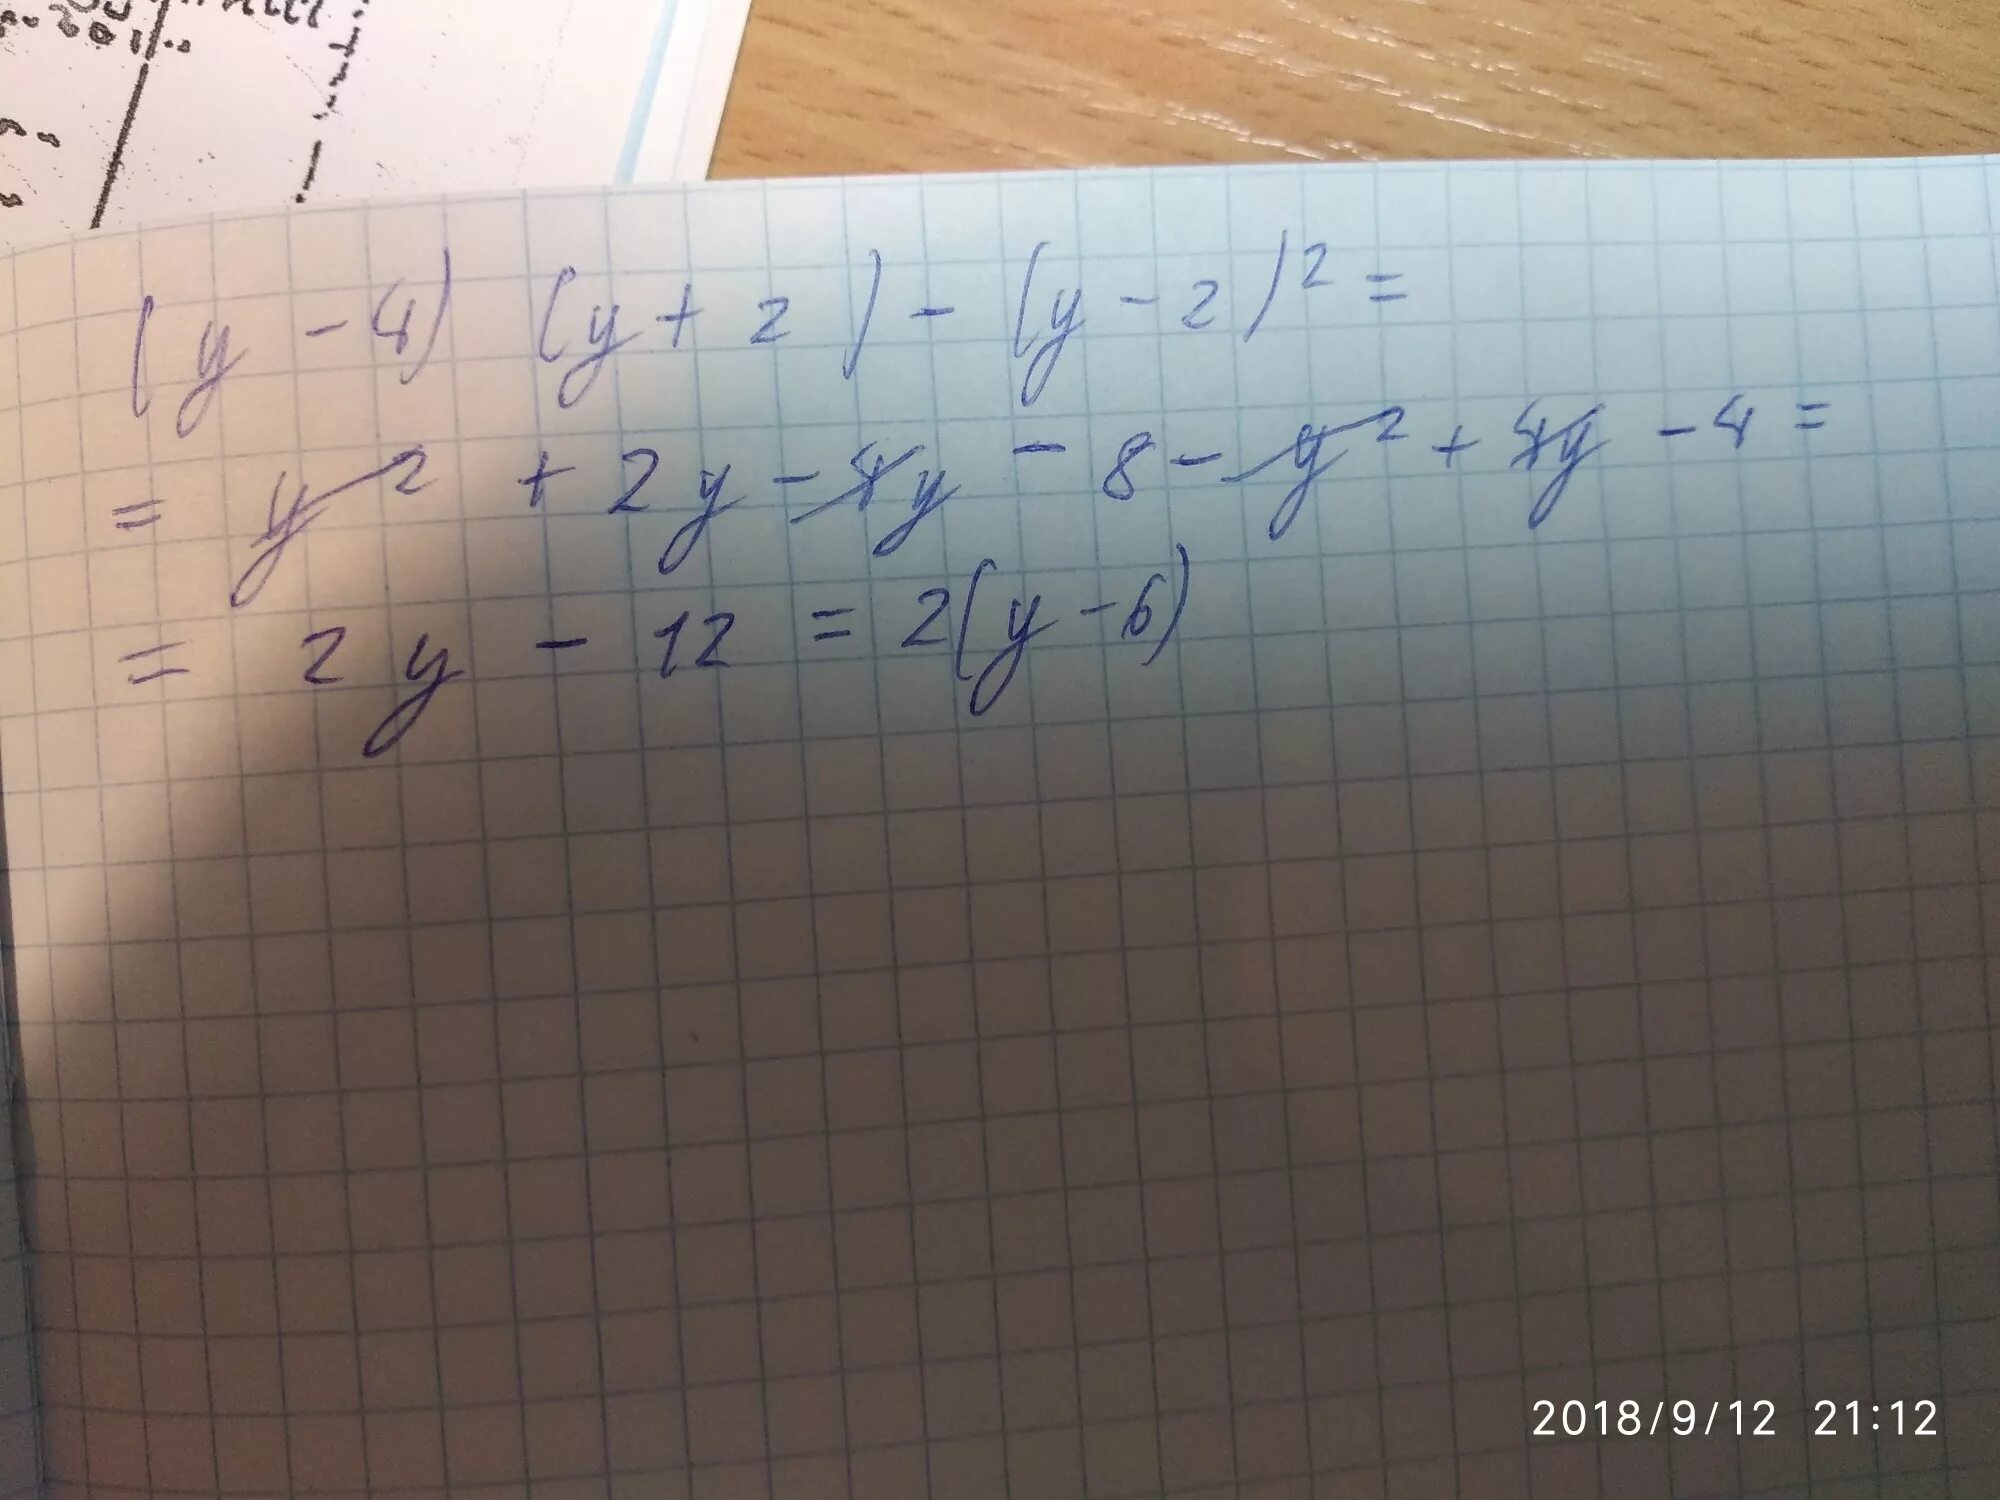 (y - 4) (y + 2) - (y - 2)² =
= y² + 2y - 4y - 8 - y² + 4y - 4 =
= 2y - 12 = 2(y - 6)
2018/9/12 21:12